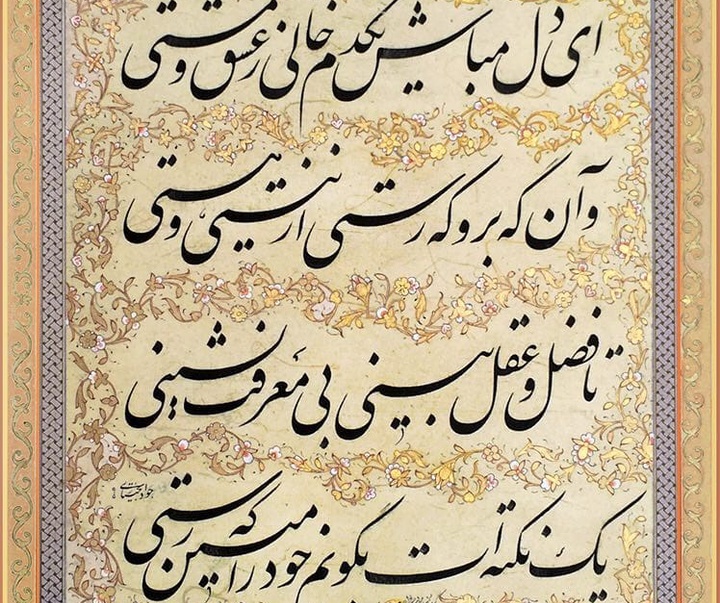 ای دل مباش یکدم خالی ز عشق و مستی
وآن گه برو که رستی از نیستی و هستی
تا فضل و عقل بینی بی معرفت نشینی
یک نکته ات بگویم خود را مبین که رستی